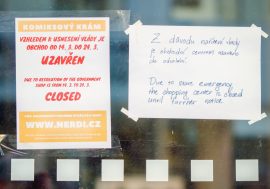 KOMIKSOVÝ KRÁM
VZHLEDEM K USNESENÍ VLÁDY JE
OBCHOD OD 14. 3. DO 24. 3.
UZAVŘEN
DUE TO RESOLUTION OF THE GOVERNMENT
SHOP IS FROM 14. 3. TO 24. 3.
CLOSED
WWW.NERDI.CZ
Z důvodu nařízení vlády
je obchodní centrum uzavřeno
do odvolání.
Due to state emergency
the shopping center is closed
until further notice.